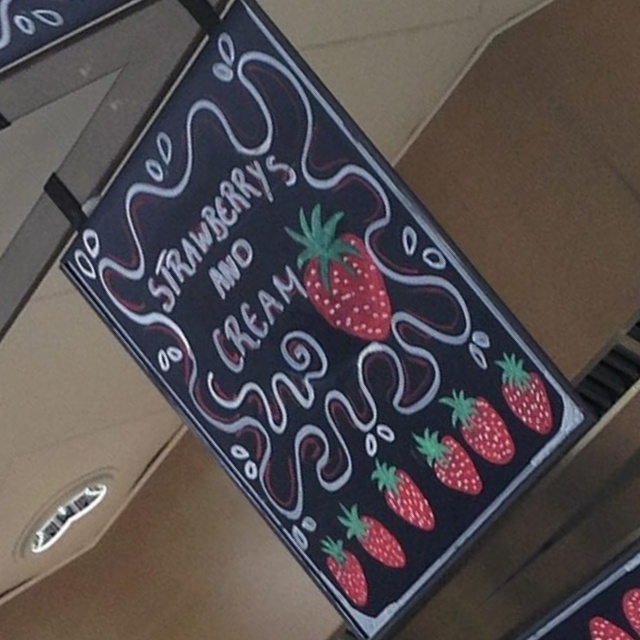 STRAWBERRYS
AND
CREAM